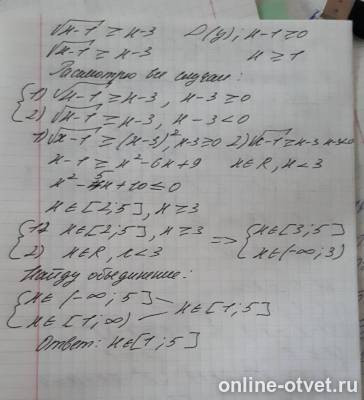 √x-1 ≥ x-3   D(y); x-1 ≥ 0
√x-1 ≥ x-3   x ≥ 1
Расмотрю все случаи:
{ 1) √x-1 ≥ x-3, x-3 ≥ 0
2) √x-1 ≥ x-3, x-3 < 0
1) √x-1 ≥ (x-3)², x-3 ≥ 0 2) √x-1 ≥ x-3 x-3<0
x-1 ≥ x²-6x+9   x∈R, x<3
x² - x+10 ≤ 0
x∈[2;5], x ≥ 3
{ 1) x∈[2;5], x ≥ 3 => { x∈[3;5]
2) x∈R, x<3   x∈(-∞;3)
Найду объединение:
{ x∈(-∞;5]
x∈[1;∞) x∈[1;5]
Ответ: x∈[1;5]
online-otvet.ru